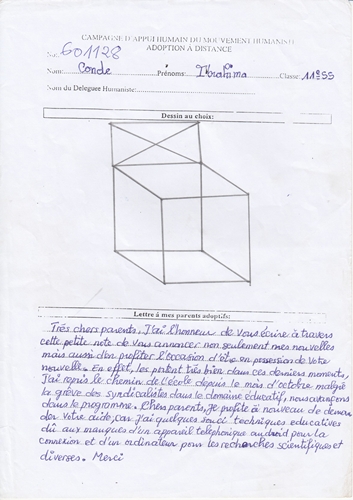 CAMPAGNE D'APPUI HUMAIN DU MOUVEMENT HUMANISTE
ADOPTION A DISTANCE
No: GO1128
Nom: Conde Prénoms: Ibrahima Classe: 11e SS
Nom du Deleguee Humaniste:
Dessin au choix:
Lettre à mes parents adoptifs:
Très chers parents, J'ai l'honneur de Vous écrire à travers
cette petite note de Vous annoncer non seulement mes nouvelles
mais aussi d'en profiter l'occasion d'être en possession de Votre
nouvelle. En effet, les portent très bien dans ces derniers moments,
J'ai repris le chemin de l'école depuis le mois d'octobre malgré
la grève des syndicalistes dans le domaine éducatif, nous avançons
dans le programme. Chers parents, je profite à nouveau de deman
der Votre aide car j'ai quelques souci techniques educatives
dû aux manques d'un appareil téléphonique android pour la
connexion et d'un ordinateur pour les recherches scientifiques et
diverses. Merci